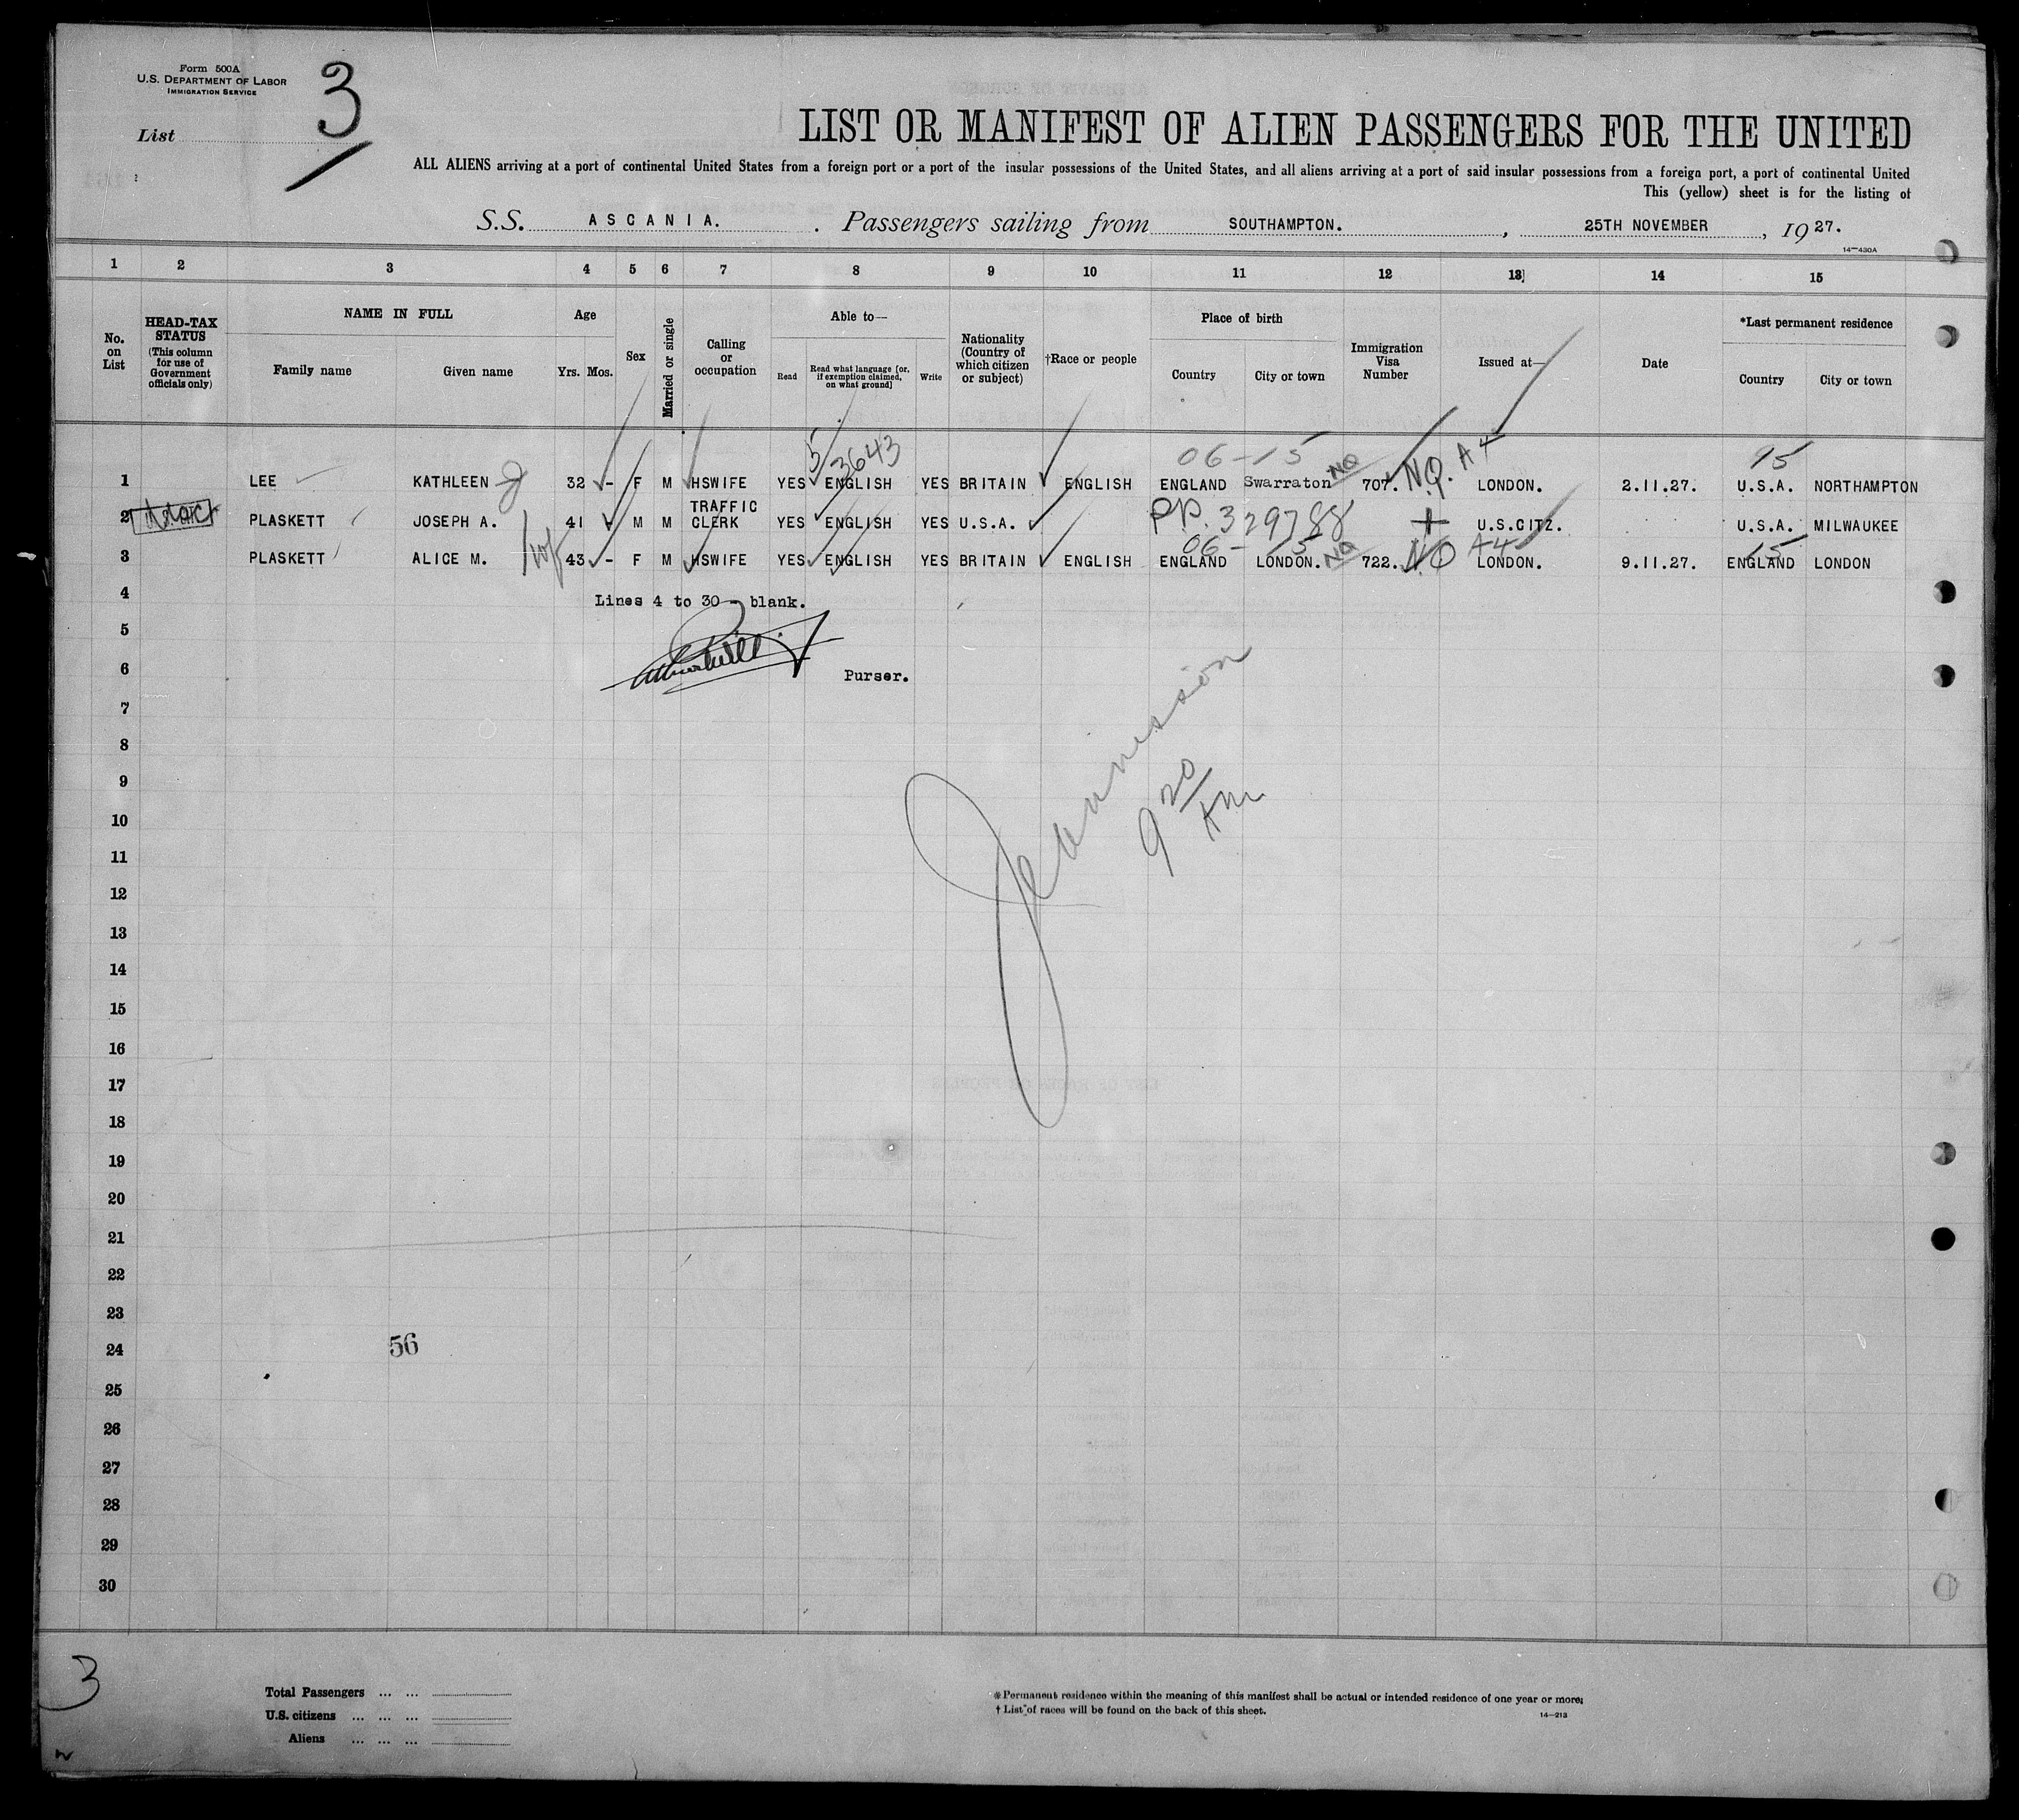 Form 500A
U.S. DEPARTMENT OF LABOR
IMMIGRATION SERVICE
List 3
LIST OR MANIFEST OF ALIEN PASSENGERS FOR THE UNITED
ALL ALIENS arriving at a port of continental United States from a foreign port or a port of the insular possessions of the United States, and all aliens arriving at a port of said insular possessions from a foreign port, a port of continental United
This (yellow) sheet is for the listing of
S.S. ASCANIA. Passengers sailing from SOUTHAMPTON. , 25TH NOVEMBER , 19 27.
14—430A
1 2 3 4 5 6 7 8 9 10 11 12 13 14 15
No. on List
HEAD-TAX STATUS (This column for use of Government officials only)
NAME IN FULL
Family name
Given name
Age
Yrs. Mos.
Sex
Married or single
Calling or occupation
Able to—
Read
Read what language [or, if exemption claimed, on what ground]
Write
Nationality (Country of which citizen or subject)
†Race or people
Place of birth
Country
City or town
Immigration Visa Number
Issued at—
Date
*Last permanent residence
Country
City or town
5/3643 06-15 95
1 LEE KATHLEEN 32 - F M HSWIFE YES ENGLISH YES BRITAIN ENGLISH ENGLAND Swarraton NQ 707. N.Q. A4 LONDON. 2.11.27. U.S.A. NORTHAMPTON
2 PLASKETT JOSEPH A. 41 M M TRAFFIC CLERK YES ENGLISH YES U.S.A. ENGLISH P.P. 329788 + U.S.CITZ. U.S.A. MILWAUKEE
06-15 A4 15
3 PLASKETT ALICE M. 43 - F M HSWIFE YES ENGLISH YES BRITAIN ENGLISH ENGLAND LONDON. NQ 722. NQ LONDON. 9.11.27. ENGLAND LONDON
4 Lines 4 to 30 - blank.
5
6 Purser.
7
8
9
10
11
12
13
14
15
16
17
18
19
20
21
22
23
24 56
25
26
27
28
29
30
9 20 AM
3
Total Passengers ... ...
U.S. citizens ... ... ...
Aliens ... ... ...
* Permanent residence within the meaning of this manifest shall be actual or intended residence of one year or more.
† List of races will be found on the back of this sheet.
14—213